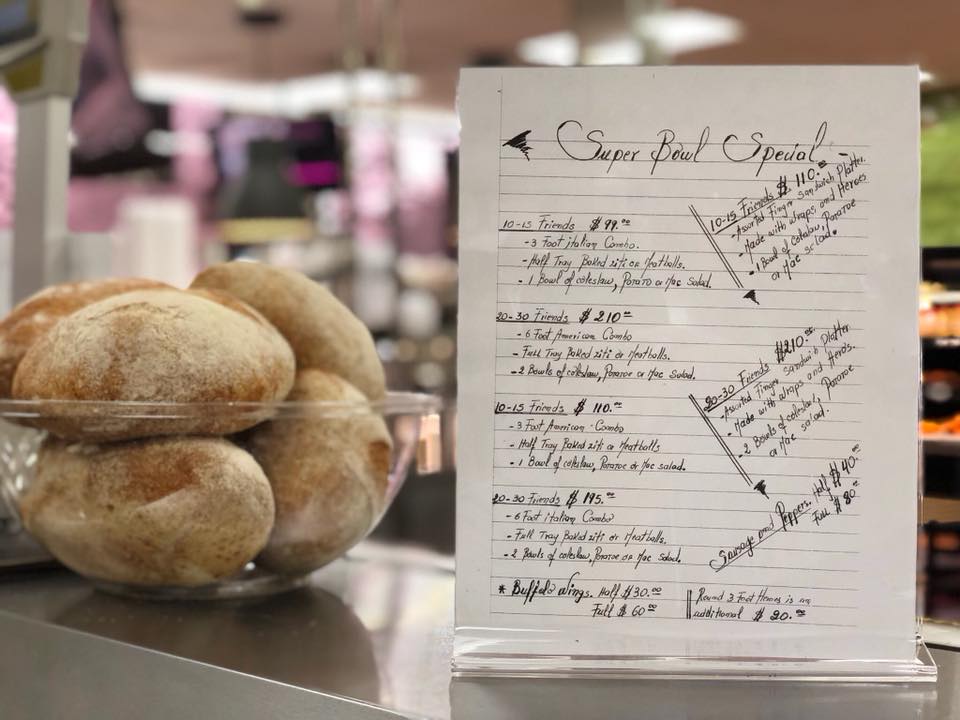 Super Bowl Special
10-15 Friends $ 99.00
-3 Foot italian Combo.
-Half Tray Baked ziti or Meatballs.
-1 Bowl of coleslaw, Potato or Mac Salad.
20-30 Friends $ 210.00
-6 Foot American Combo
-Full Tray Baked ziti or Meatballs.
-2 Bowls of coleslaw, Potatoe or Mac Salad.
10-15 Friends $ 110.00
-3 Foot American Combo
-Half Tray Baked ziti or Meatballs
-1 Bowl of coleslaw, Potatoe or Mac salad.
20-30 Friends $ 195.00
-6 Foot italian Combo
-Full Tray Baked ziti or Meatballs.
-2 Bowls of coleslaw, Potatoe or Mac Salad.
* Buffalo wings. Half $30.00
Full $ 60.00
10-15 Friends $ 110.00
-Assorted Finger Sandwich Platter.
-Made with Wraps and Heroes
-1 Bowl of Coleslaw, Potatoe
or Mac salad.
20-30 Friends $210.00
-Assorted Finger Sandwich Platter
-Made with Wraps and Hero's.
-2 Bowls of coleslaw, Potatoe
or Mac salad.
Sausage and Peppers. Half $ 40.00
Full $ 80.00
Round 3 Foot Heroes is an
additional $ 20.00